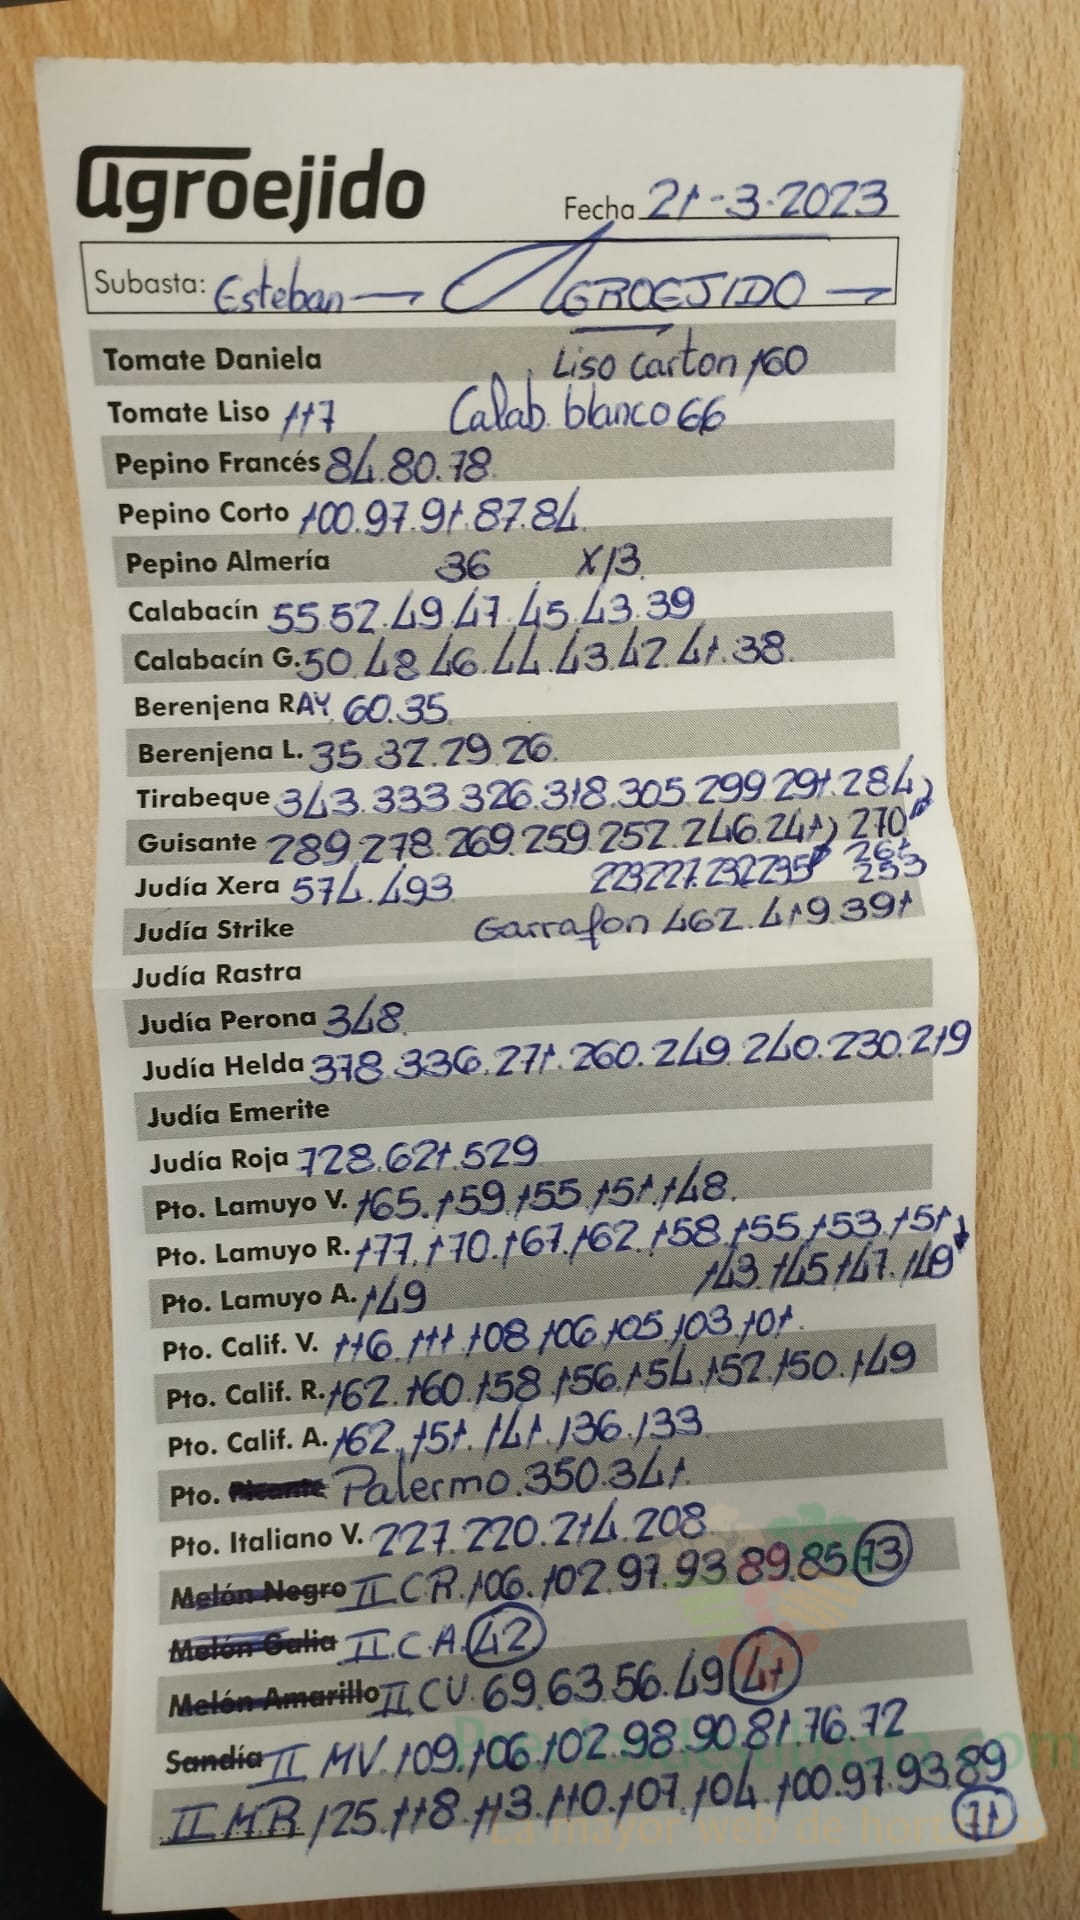 agroejido
Fecha 21-3-2023
Subasta: Esteban — AGROEJIDO —
Tomate Daniela Liso carton 160
Tomate Liso 117 Calab. blanco 66
Pepino Francés 84.80.78
Pepino Corto 100.97.91.87.84
Pepino Almería 36 X/3
Calabacín 55.52.49.47.45.43.39
Calabacín G. 50.48.46.44.43.42.41.38
Berenjena RAY 60.35
Berenjena L. 35.32.29.26
Tirabeque 343.333.326.318.305.299.291.284
Guisante 289.278.269.259.252.246.241 270
261
Judía Xera 574.493 223 227.232 235 253
Judía Strike Garrafon 462.419.391
Judía Rastra
Judía Perona 348
Judía Helda 378.336.271.260.249.240.230.219
Judía Emerite
Judía Roja 728.621.529
Pto. Lamuyo V. 165.159.155.151.148
Pto. Lamuyo R. 177.170.167.162.158.155.153.151
Pto. Lamuyo A. 149 143.145.147.149
Pto. Calif. V. 116.111.108.106.105.103.101
Pto. Calif. R. 162.160.158.156.154.152.150.149
Pto. Calif. A. 162.151.141.136.133
Pto. Picante Palermo.350.341
Pto. Italiano V. 227.220.214.208
Melón Negro II CR.106.102.97.93.89.85.73
Melón Galia II C A. 42
Melón Amarillo II CV. 69.63.56.49 41
Sandía II MV.109.106.102.98.90.81.76.72
II MR 125.118.113.110.107.104.100.97.93.89
71
La mayor web de